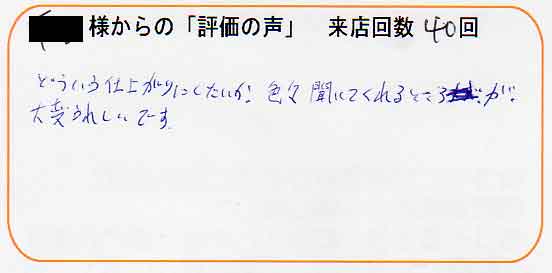 様からの「評価の声」 来店回数 40回
どういう仕上がりにしたいか、色々聞いてくれるところが、
大変うれしいです。